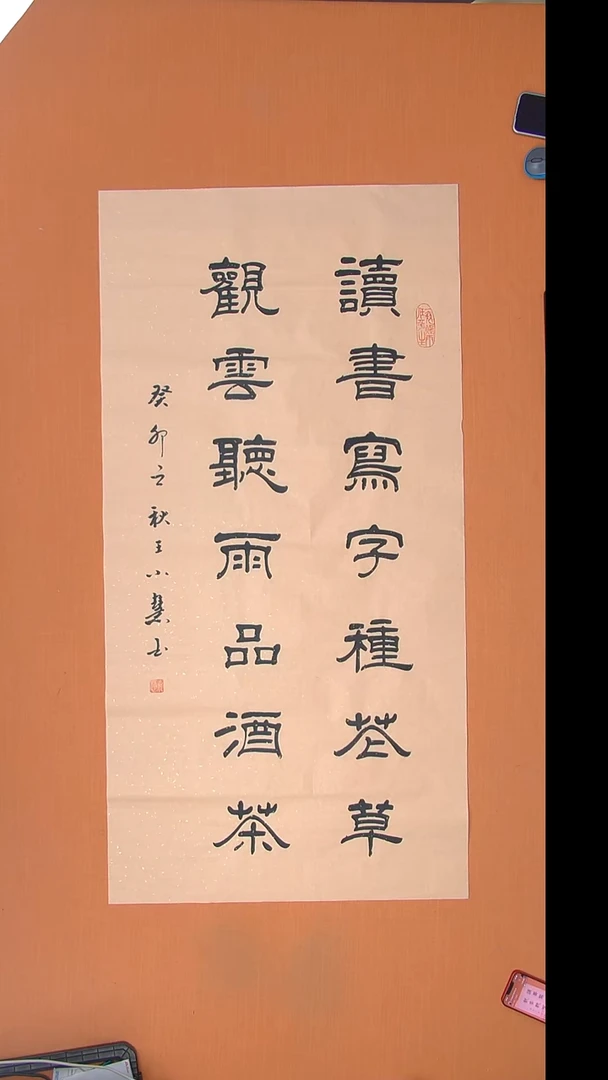 讀書寫字種花草
觀雲聽雨品酒茶
癸卯立秋王小慧書